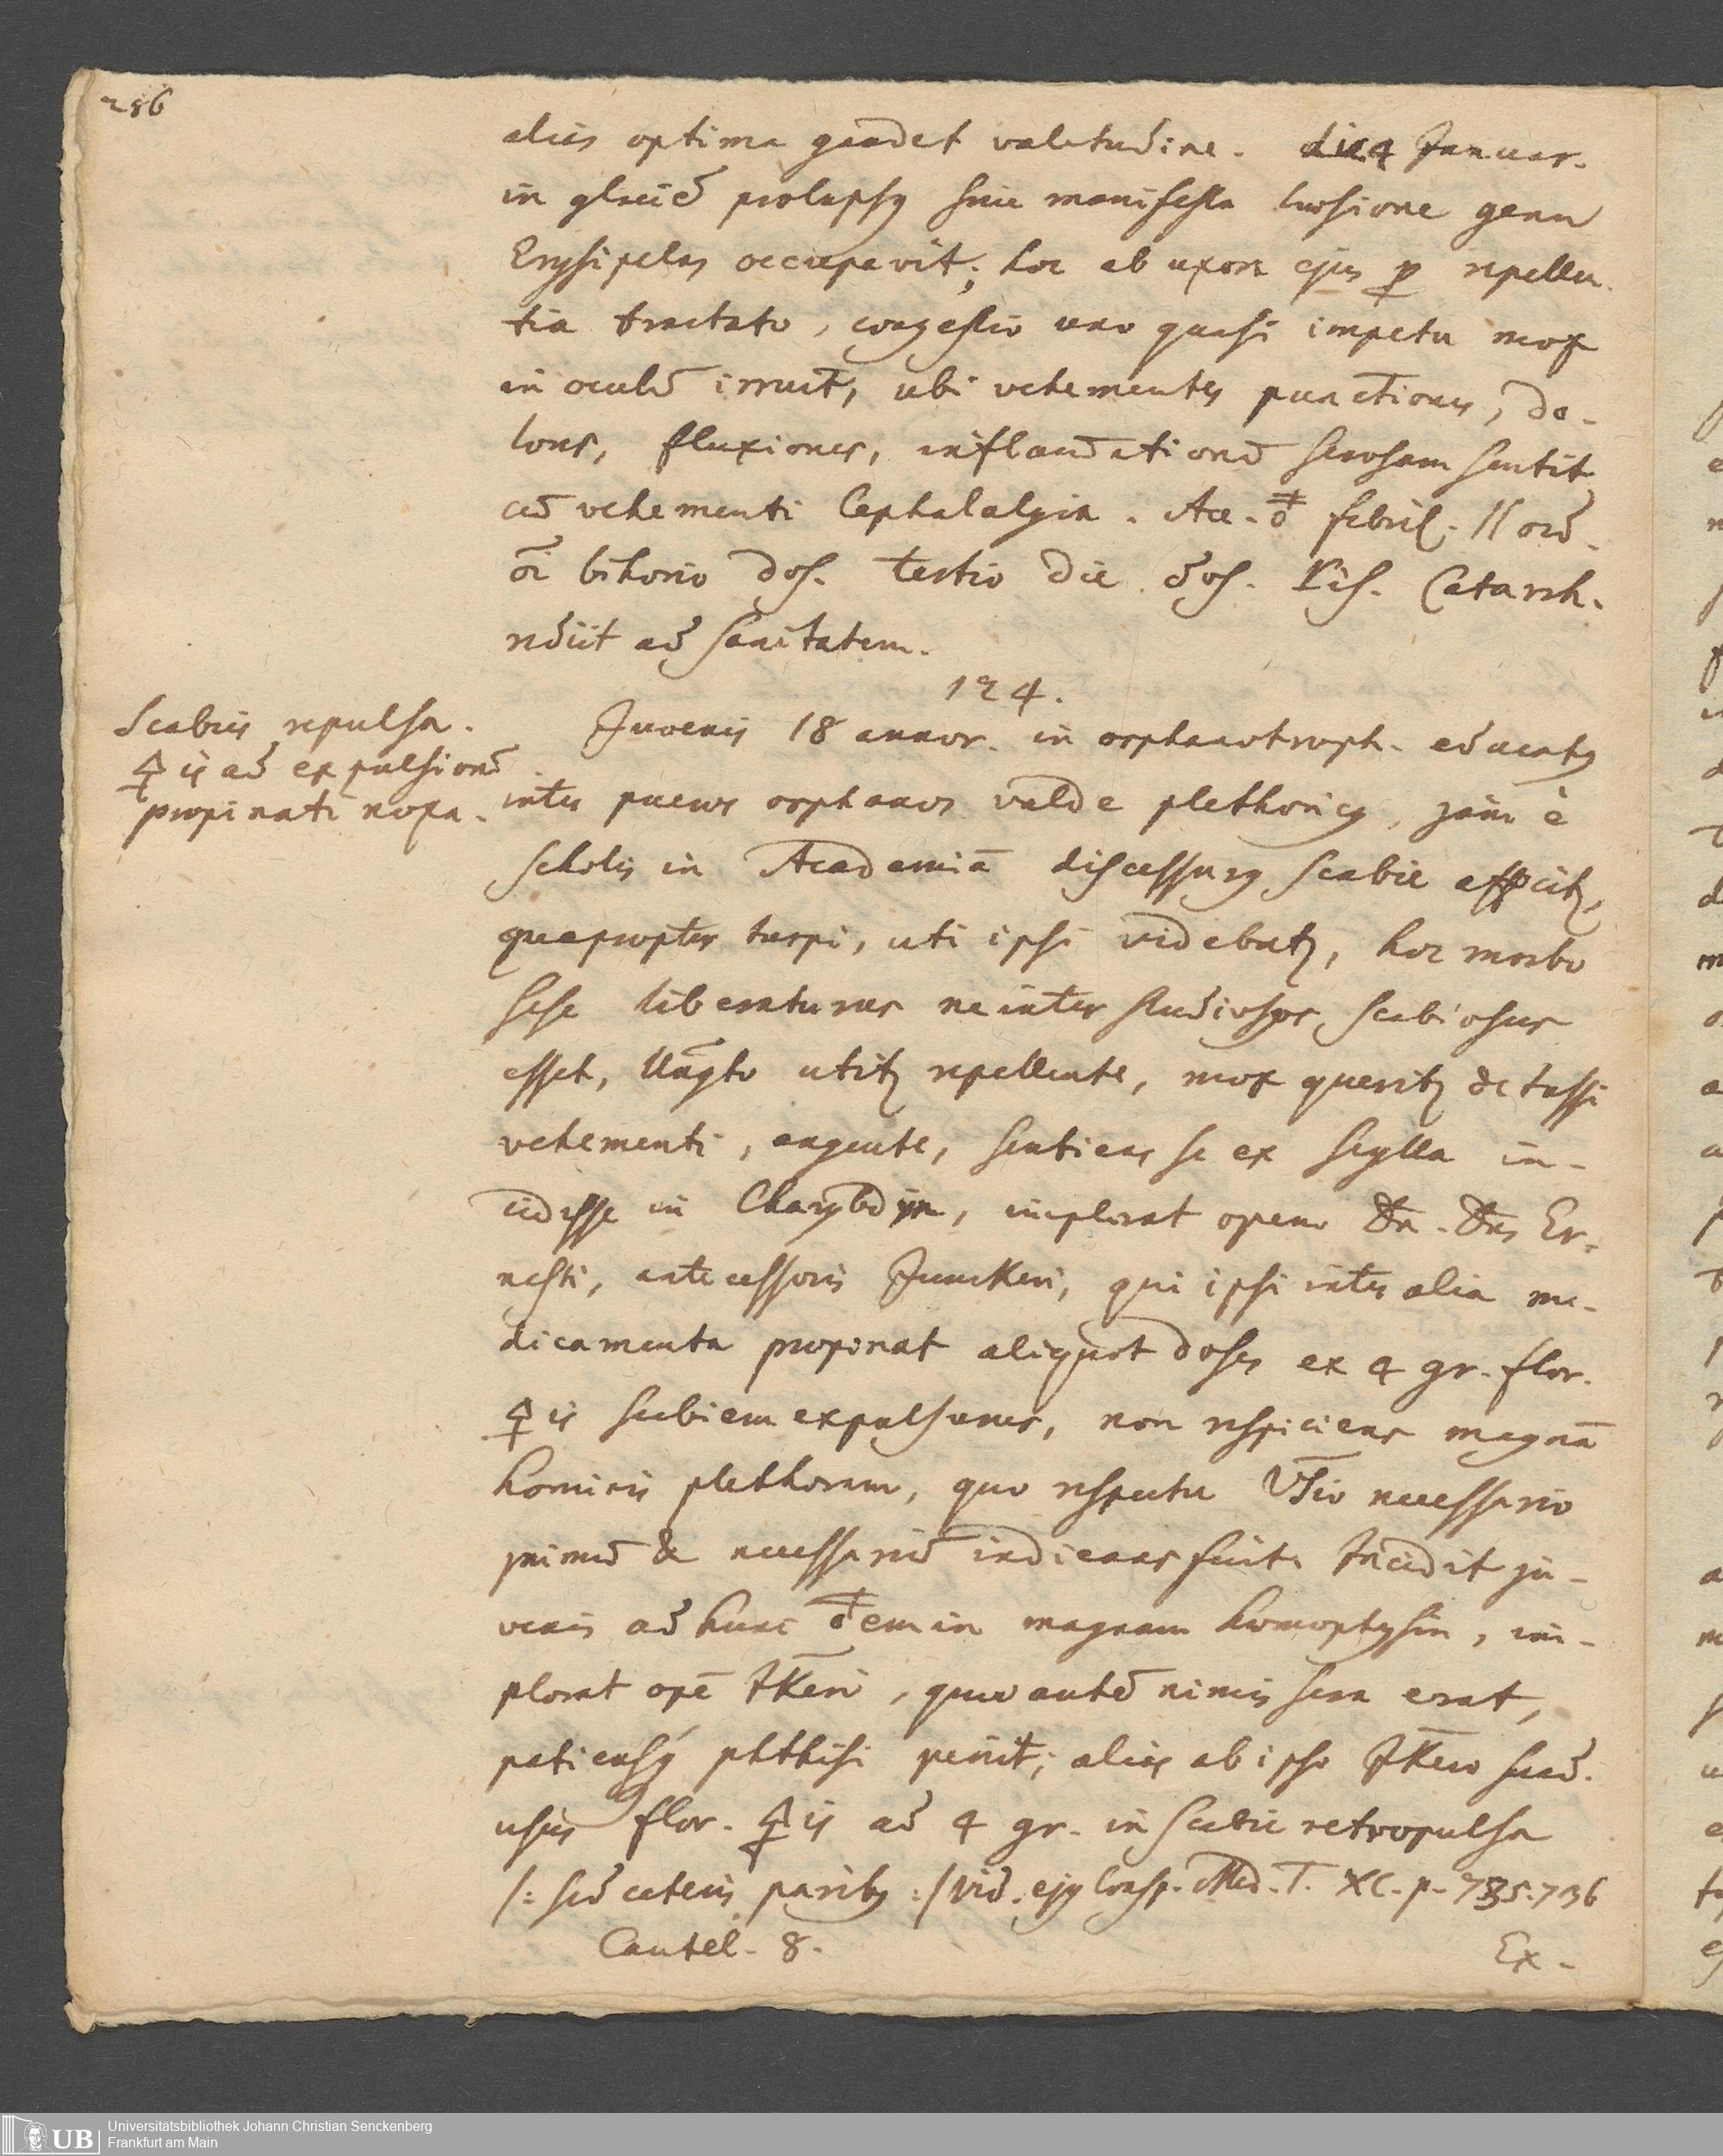 286
alias optima gaudet valetudine. die 4 Januar.
in glaciē prolapsꝫ sine manifesta laesione genu
Erysipelas occupavit; hoc ab uxore ejus ꝑ repellen
tia tractato, congestio uno quasi impetu mox
in oculū irruit, ubi vehementes punctiones, do-
lores, fluxiones, inflam̄ationē serosam sentit
cū vehementi Cephalalgia. Acc. febril.
bihorio dos. tertio die dos. Catarrh.
rediit ad sanitatem.
124.
Scabies repulsa.
🜍is ad expulsionē
propinati noxa.
Juvenis 18 annor. in orphanotroph. educatꝫ
inter pueros orphanos valde plethoricꝫ, jam è
scholis in Academiā discessurꝫ scabie afficitꝫ,
quapropter turpi, uti ipsi videbatꝫ, hoc morbo
sese liberaturus ne inter studiosos scabiosus
esset, Ungto utitꝫ repellente, mox queritꝫ de tussi
vehementi, angente, sentiens se ex Scylla in-
cidisse in Charybdyn, implorat opem Dn. Drs Er-
nesti, antecessoris Junckeri, qui ipsi inter alia me-
dicamenta propinat aliquot doses ex 4 gr. flor.
🜍is scabiem expulsurus, non respiciens magnā
hominis plethoram, quo respectu VSio necessario
primū & necessariū indicans fuit. Incidit ju-
venis ad hunc em in magnam haemoptysin, im-
plorat opē JKeri, quae autē nimis sera erat,
patiensqꝫ phthisi periit; alias ab ipso JKero suad.
usus flor. 🜍is ad 4 gr. in scabie retropulsa
/: sed ceteris paribꝫ :/ vid. ejꝫ Consp. Med. T. XC. p. 735. 736
Cautel. 8.
Ex-
Universitätsbibliothek Johann Christian Senckenberg
Frankfurt am Main
UB